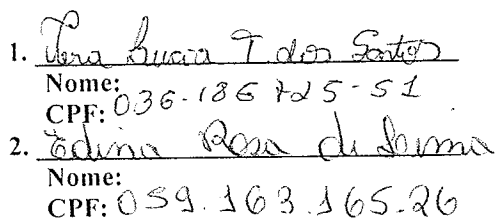 1. Vera Lucia T dos Santos
Nome:
CPF: 036.186 725-51
2. Edina Rosa de
Nome:
CPF: 059.163.165-26